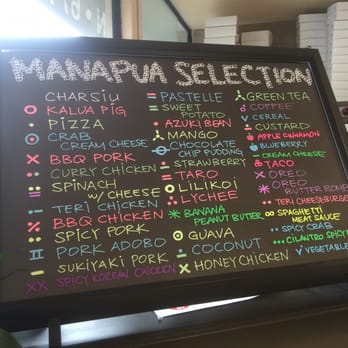 MANAPUA SELECTION
CHARSIU
KALUA PIG
PIZZA
CRAB
CREAM CHEESE
BBQ PORK
CURRY CHICKEN
SPINACH
W/ CHEESE
TERI CHICKEN
BBQ CHICKEN
SPICY PORK
PORK ADOBO
SUKIYAKI PORK
SPICY KOREAN CHICKEN
PASTELLE
SWEET
POTATO
AZUKI BEAN
MANGO
CHOCOLATE
CHIP PUDDING
STRAWBERRY
TARO
LILIKOI
LYCHEE
BANANA
PEANUT BUTTER
GUAVA
COCONUT
HONEY CHICKEN
GREEN TEA
COFFEE
CEREAL
CUSTARD
APPLE CINNAMON
BLUEBERRY
CREAM CHEESE
TACO
OREO
OREO
BUTTER BOMB
TERI CHEESEBURGER
SPAGHETTI
MEAT SAUCE
SPICY CRAB
CILANTRO SPICY
VEGETABLE